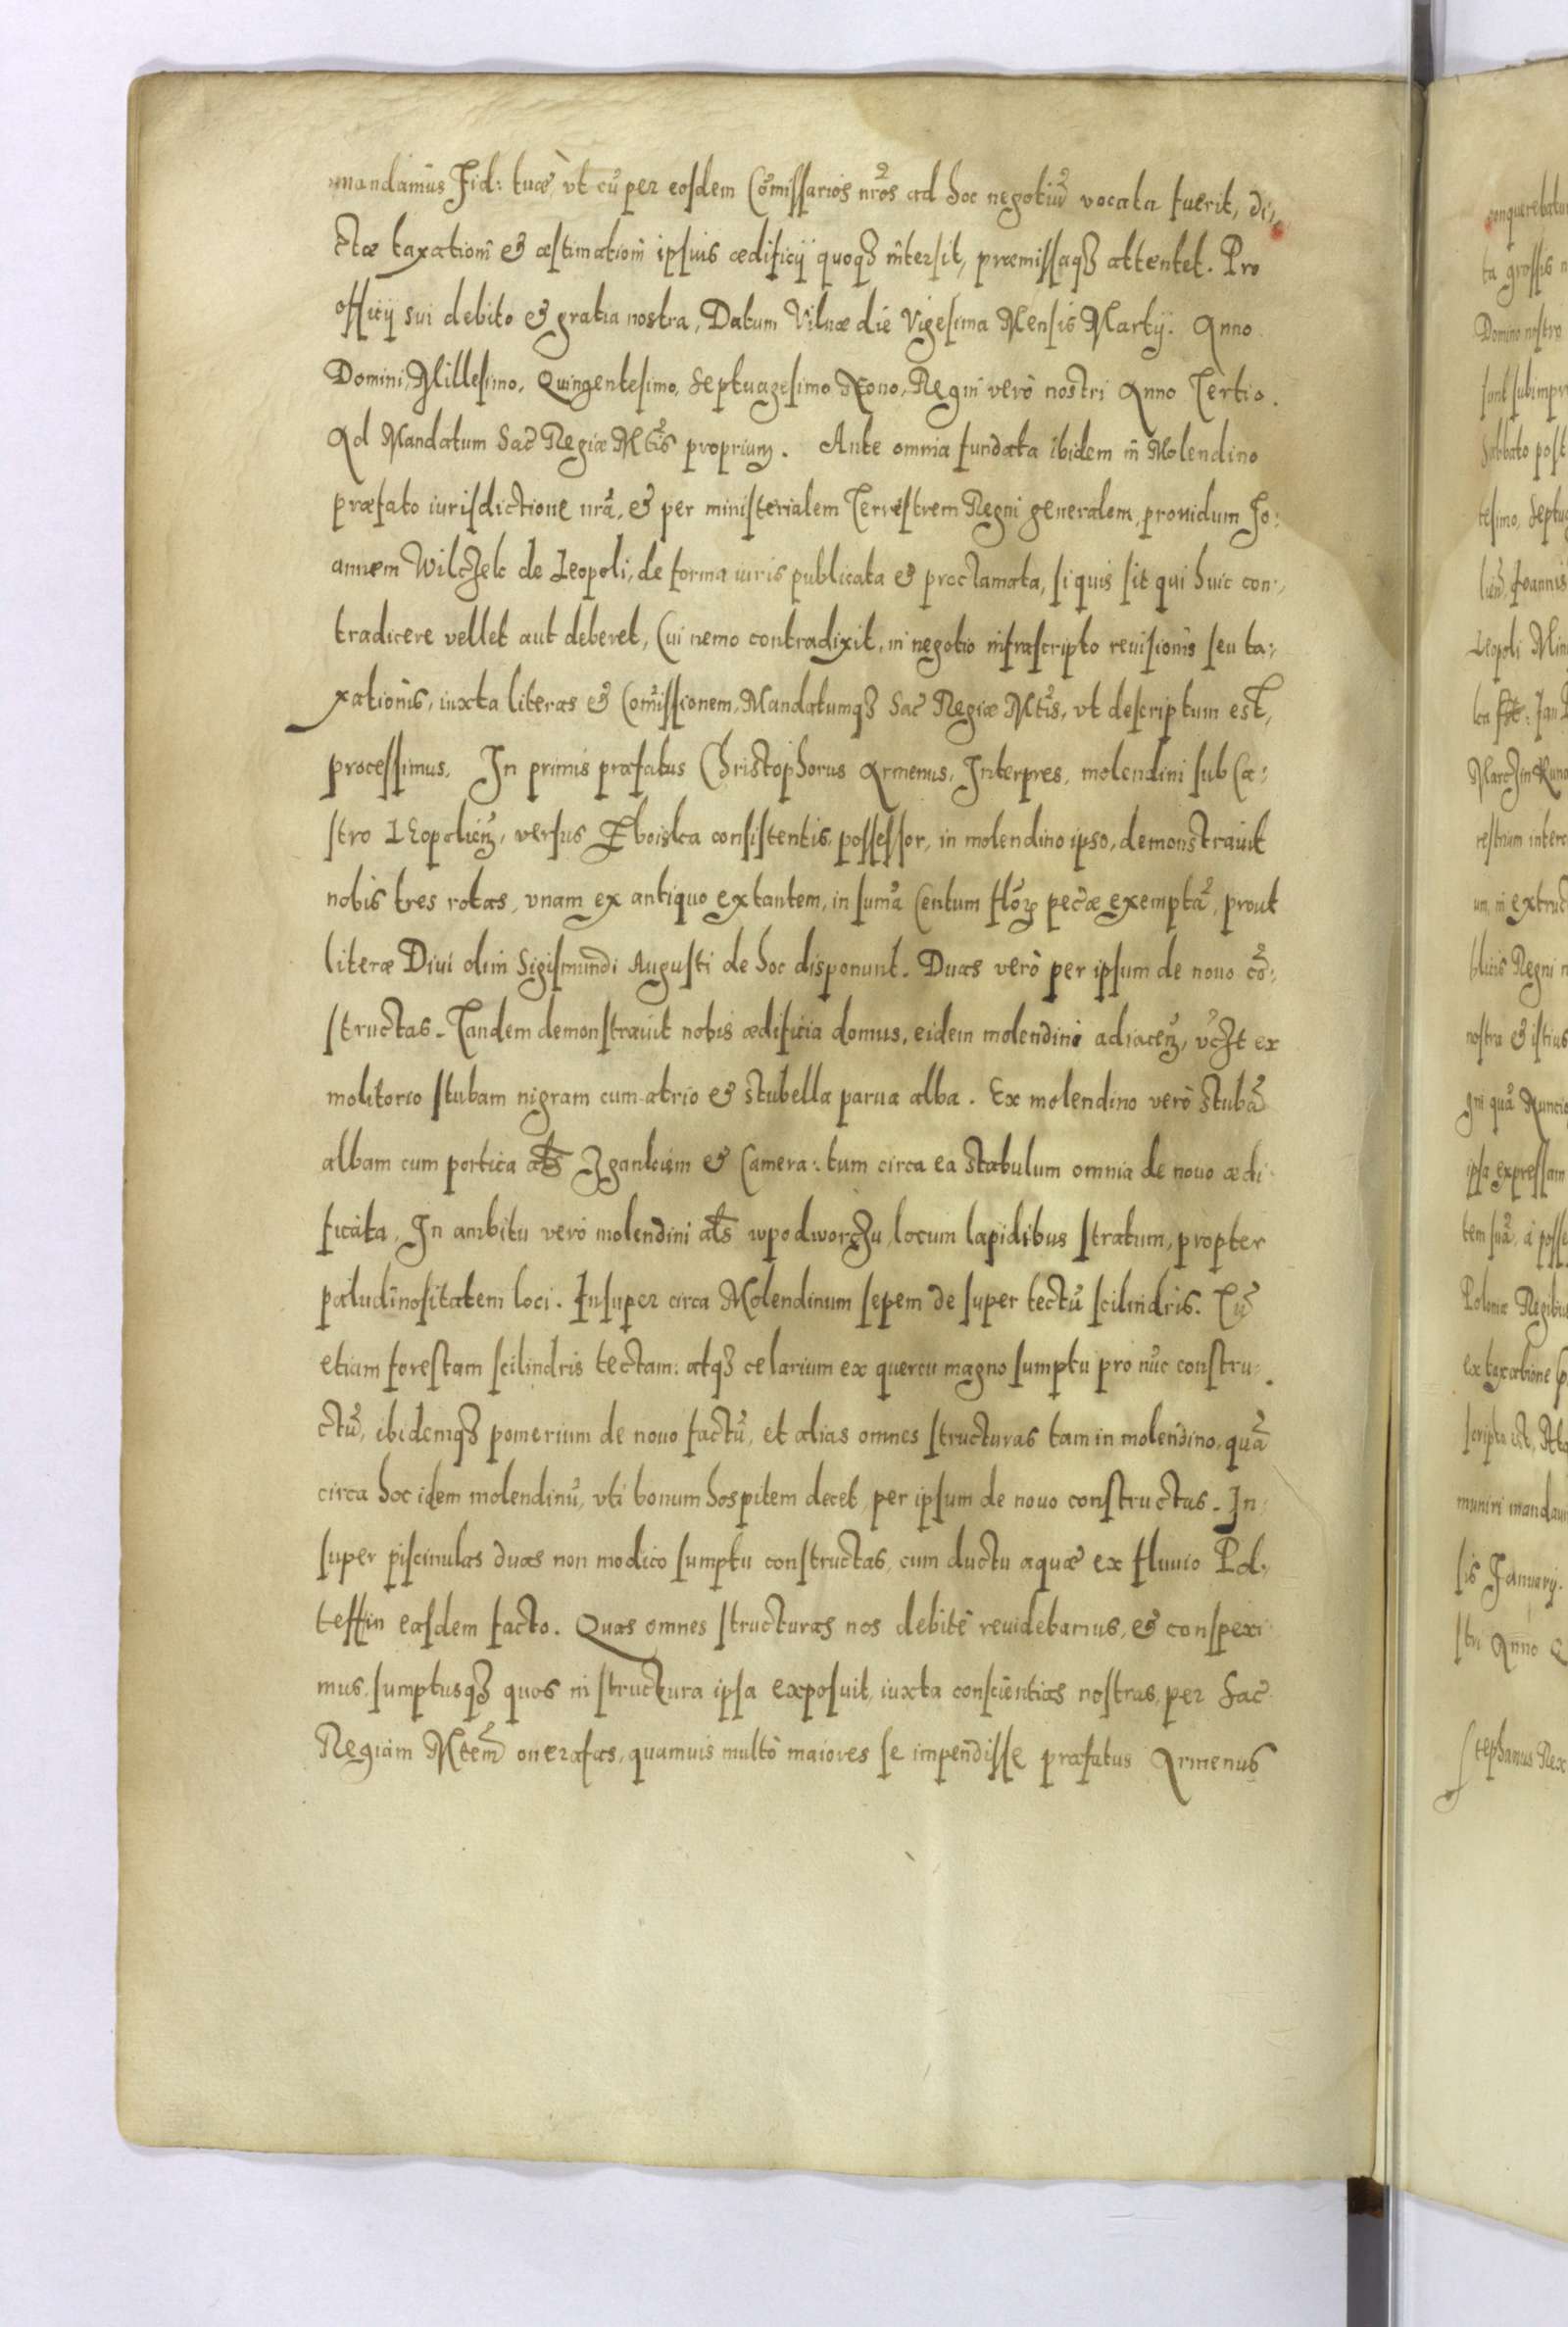 mandamus Fid: tuæ vt cũ per eosdem Com̃issarios nr̃os ad hoc negotiũ vocata fuerit, di,
ctæ taxationi & æstimationi ipsius ædificij quoqȝ intersit, præmissaqȝ attentet. Pro
officij sui debito & gratia nostra, Datum Vilnæ die Vigesima Mensis Martij. Anno
Domini, Millesimo, Quingentesimo, Septuagesimo Nono, Regni verò nostri Anno Tertio.
Ad Mandatum Sac̃ Regiæ Mt̃is proprium. Ante omnia fundata ibidem in Molendino
præfato iurisdictione nr̃a, & per ministerialem Terrestrem Regni generalem, prouidum Jo:
annem Wilczek de Leopoli, de forma iuris publicata & proclamata, si quis sit qui huic con:,
tradicere vellet aut deberet, Cui nemo contradixit, in negotio infrascripto reuisionis seu ta:,
xationis, iuxta literas & Com̃issionem, Mandatumqȝ Sac̃ Regiæ Mt̃is, vt descriptum est,
processimus. In primis præfatus Christophorus Armenus, Interpres, molendini sub Ca:
stro Leopolieñ, versus Zboiska consistentis, possessor, in molendino ipso, demonstrauit
nobis tres rotas, vnam ex antiquo extantem, in sum̃a Centum flor̃ pec̃æ exemptã, prout
literæ Diui olim Sigismundi Augusti de hoc disponunt. Duas verò per ipsum de nouo cõ:,
structas. Tandem demonstrauit nobis ædificia domus, eidem molendino adiaceñ, vczt ex
molitorio stubam nigram cum atrio & stubella parua alba. Ex molendino verò stubã
albam cum portica als̃ Zgankiem & Camera: tum circa ea stabulum omnia de nouo ædi
ficata. In ambitu verò molendini als̃ wpodworzu, locum lapidibus stratum, propter
paludinositatem loci. Insuper circa Molendinum sepem de super tectũ scilindris. Tũ
etiam forestam scilindris tectam: atqȝ celarium ex quercu magno sumptu pro nũc constru:
ctũ, ibidemqȝ pomerium de nouo factũ, et alias omnes structuras tam in molendino, quã
circa hoc idem molendinũ, vti bonum hospitem decet per ipsum de nouo constructas. In
super piscinulas duas non modico sumptu constructas, cum ductu aquæ ex fluuio Pol,
teff in easdem facto. Quas omnes structuras nos debitè reuidebamus, & conspexi
mus, sumptusqȝ quos in structura ipsa exposuit, iuxta conscientias nostras, per Sac̃
Regiam Mtem̃ oneratas, quamuis multò maiores se impendisse præfatus Armenus
conquerebatur
ta grossis
Domino nostro
Sabbato post
tesimo, Septu
Joannis
Leopoli Min
Jan
Marczin
restrium
in extruc
blicis Regni
nostra & istius
gni quã Nuncio
ipsa expressam
tem suã, à posse
Poloniæ Regibus
ex taxatione
scripta est,
muniri mandaui
sis Januarij.
stri Anno
Stephanus Rex